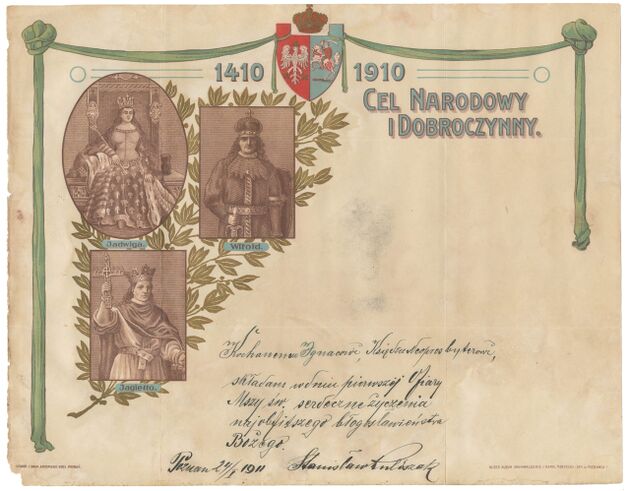 1410 1910
CEL NARODOWY
I DOBROCZYNNY.
Jadwiga.
Witold.
Jagiełło.
Kochanemu Ignacowi Księdzu Neopresbyterowi,
składam w dniu pierwszój Ofiary
Mszy św. serdeczne życzenia
najobfitszego błogosławieństwa
Bożego.
Poznań 1911 Stanisław